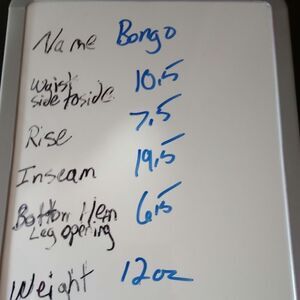 Name Bongo
Waist 10.5
side to side
Rise 7.5
Inseam 19.5
Bottom Hem 6.5
Leg opening
Weight 12oz